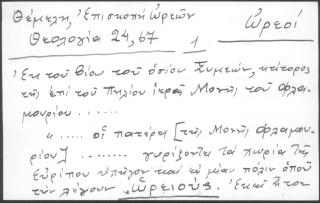 Θέμελη, Ἐπισκοπή Ὠρεῶν
Θεολογία 24, 67
1
Ὠρεοί
Ἐκ τοῦ βίου τοῦ ὁσίου Συμεών, κτίτορος
τῆς ἐπί τοῦ Πηλίου ἱερᾶς Μονῆς τοῦ Φλα-
μουρίου .....
" ..... οἱ πατέρες [τῆς Μονῆς Φλαμου-
ρίου] ....... γυρίζοντες τά χωρία τῆς
Εὐρίπου ὑπῆγον καί εἰς μίαν πόλιν ὁποῦ
τήν λέγουν Ὠρειούς. Ἐκεῖ ἦτον